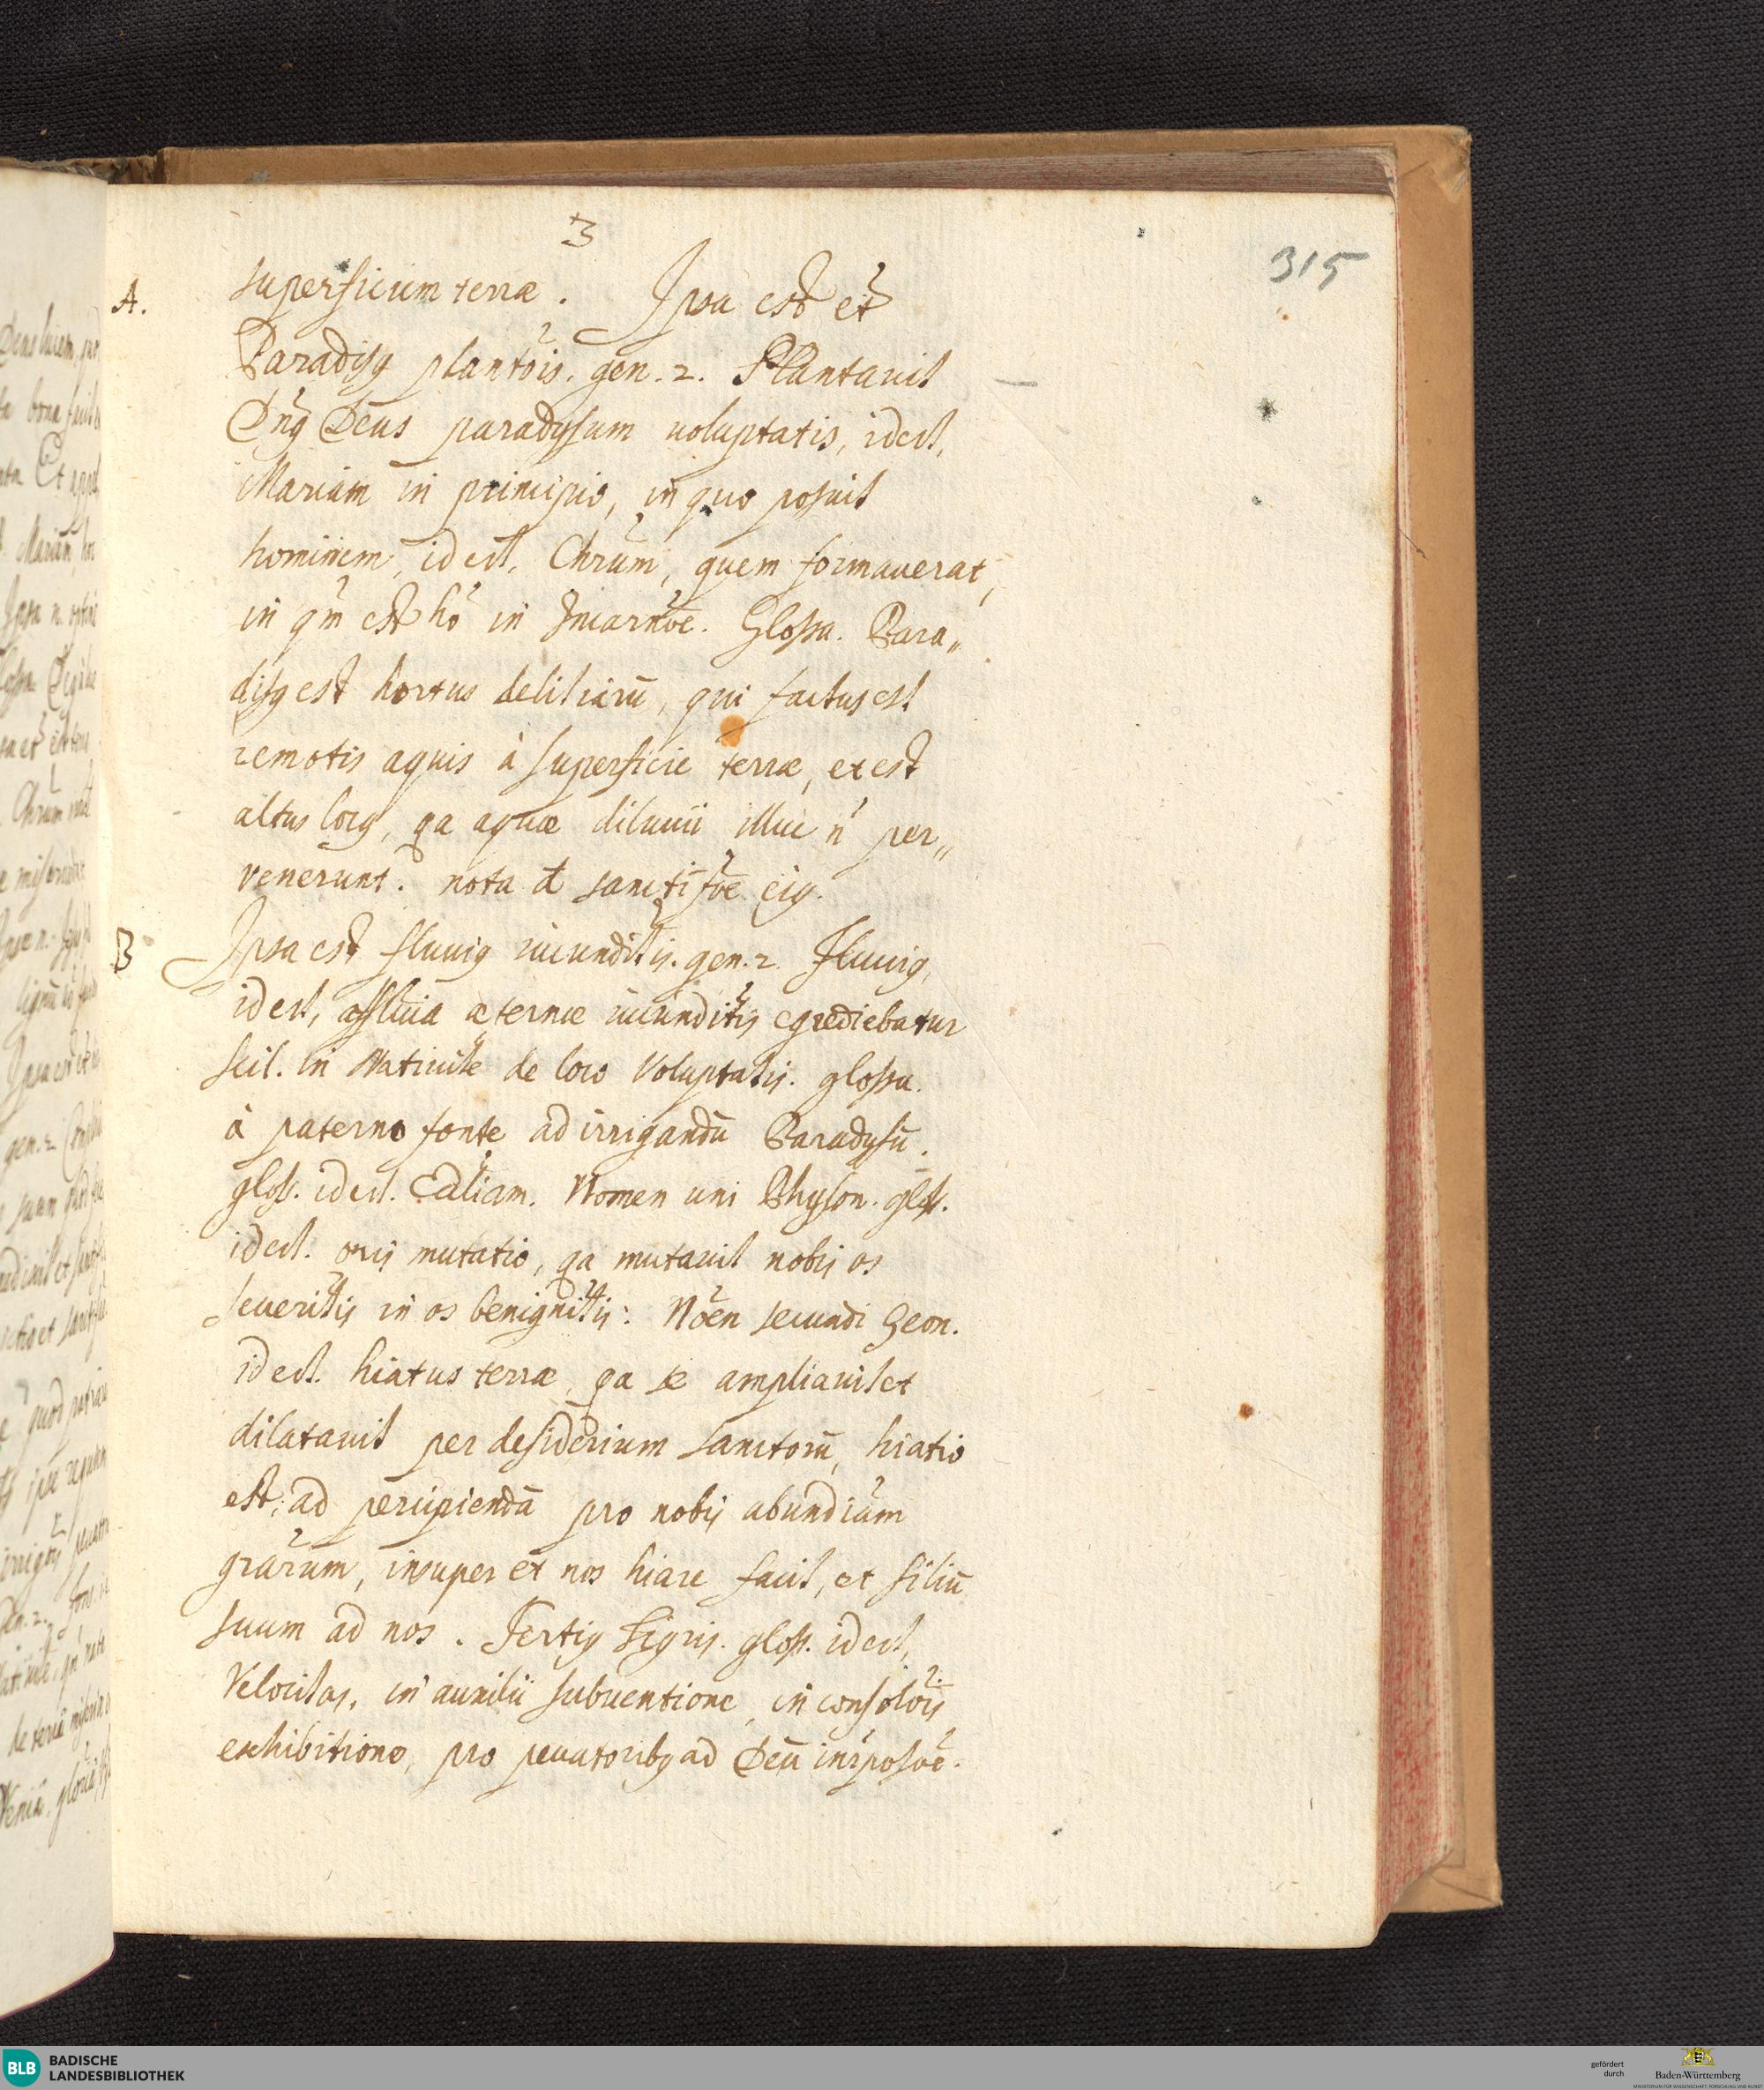 3
315
A. superficiem terræ. Ipsa est et
Paradisꝰ plantõis. gen. 2. Plantauit
Dñꝰ Deus paradysum uoluptatis, idest,
Mariam in principio, in quo posuit
hominem, idest, Chrũm, quem formauerat,
in qm̃ est hõ in Incarnõe. Glossa. Para„
disꝰ est hortus delitiarũ, qui factus est
remotis aquis à superficie terræ, et est
altus locꝰ, qa aquæ diluuii illuc ñ per„
venerunt. nota đ sanctifõe eiꝰ.
B Ipsa est fluuiꝰ iucundit̃is. gen. 2. Fluuiꝰ,
idest, affluĩa æternæ iucundit̃is egrediebatur
scil. in Natiuit̃e de loco Voluptatis. glossa.
à paterno fonte ad irrigandũ Paradysũ.
gloss. idest. Ecc̃liam. Nomen uni Physon. gloss.
idest. oris mutatio, qa mutauit nobis os
seuerit̃is in os benignit̃is: Nõen secundi Geon.
idest. hiatus terræ, qa se ampliauit et
dilatauit per desiderium sanctorũ, hiatio
est, ad percipiendã pro nobis abundiãm
grãrum, insuper et nos hiare facit, et filiũ
suum ad nos. Tertiꝰ Tigris. gloss. idest,
Velocitas, in auxilii subuentione, in consolõis
exhibitione, pro peccatoribꝰ ad Deũ inr̃posõe.
BLB BADISCHE
LANDESBIBLIOTHEK
gefördert
durch
Baden-Württemberg